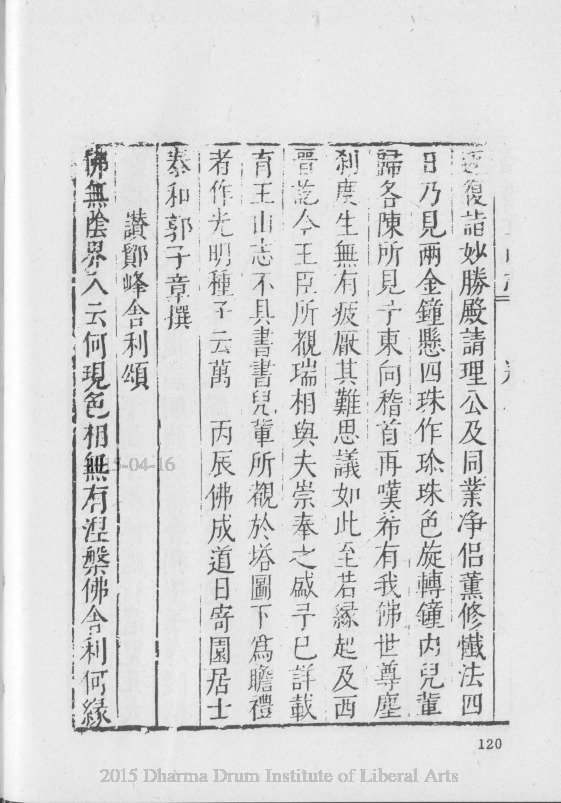 復詣妙勝殿請理公及同業净侶薰修懺法四
日乃見兩金鐘懸四珠作瑔珠色旋轉鐘内兒輩
歸各陳所見予東向稽首再嘆希有我佛世尊塵
刹度生無有疲厭其難思議如此至若緣起及西
晋迄今王臣所覩瑞相與夫崇奉之盛予巳詳載
育王山志不具書書兒輩所覩於塔圖下爲瞻禮
者作光明種子云萬 丙辰佛成道日寄園居士
泰和郭子章撰
讃鄮峰舍利頌
佛無陰界入云何現色相無有涅槃佛舍利何緣
120
2015-04-16
2015 Dharma Drum Institute of Liberal Arts